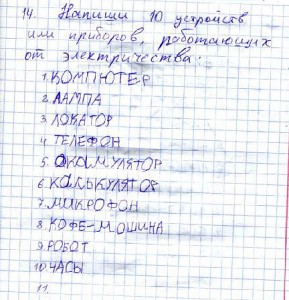 14. Напиши 10 устройств
или приборов, работающих
от электричества:
1. КОМПЮТЕР
2. ЛАМПА
3. ЛОКАТОР
4. ТЕЛЕФОН
5. ОКАМУЛЯТОР
6. КАЛЬКУЛЯТОР
7. МИКРОФОН
8. КОФЕ-МОШИНА
9. РОБОТ
10. ЧАСЫ
11.